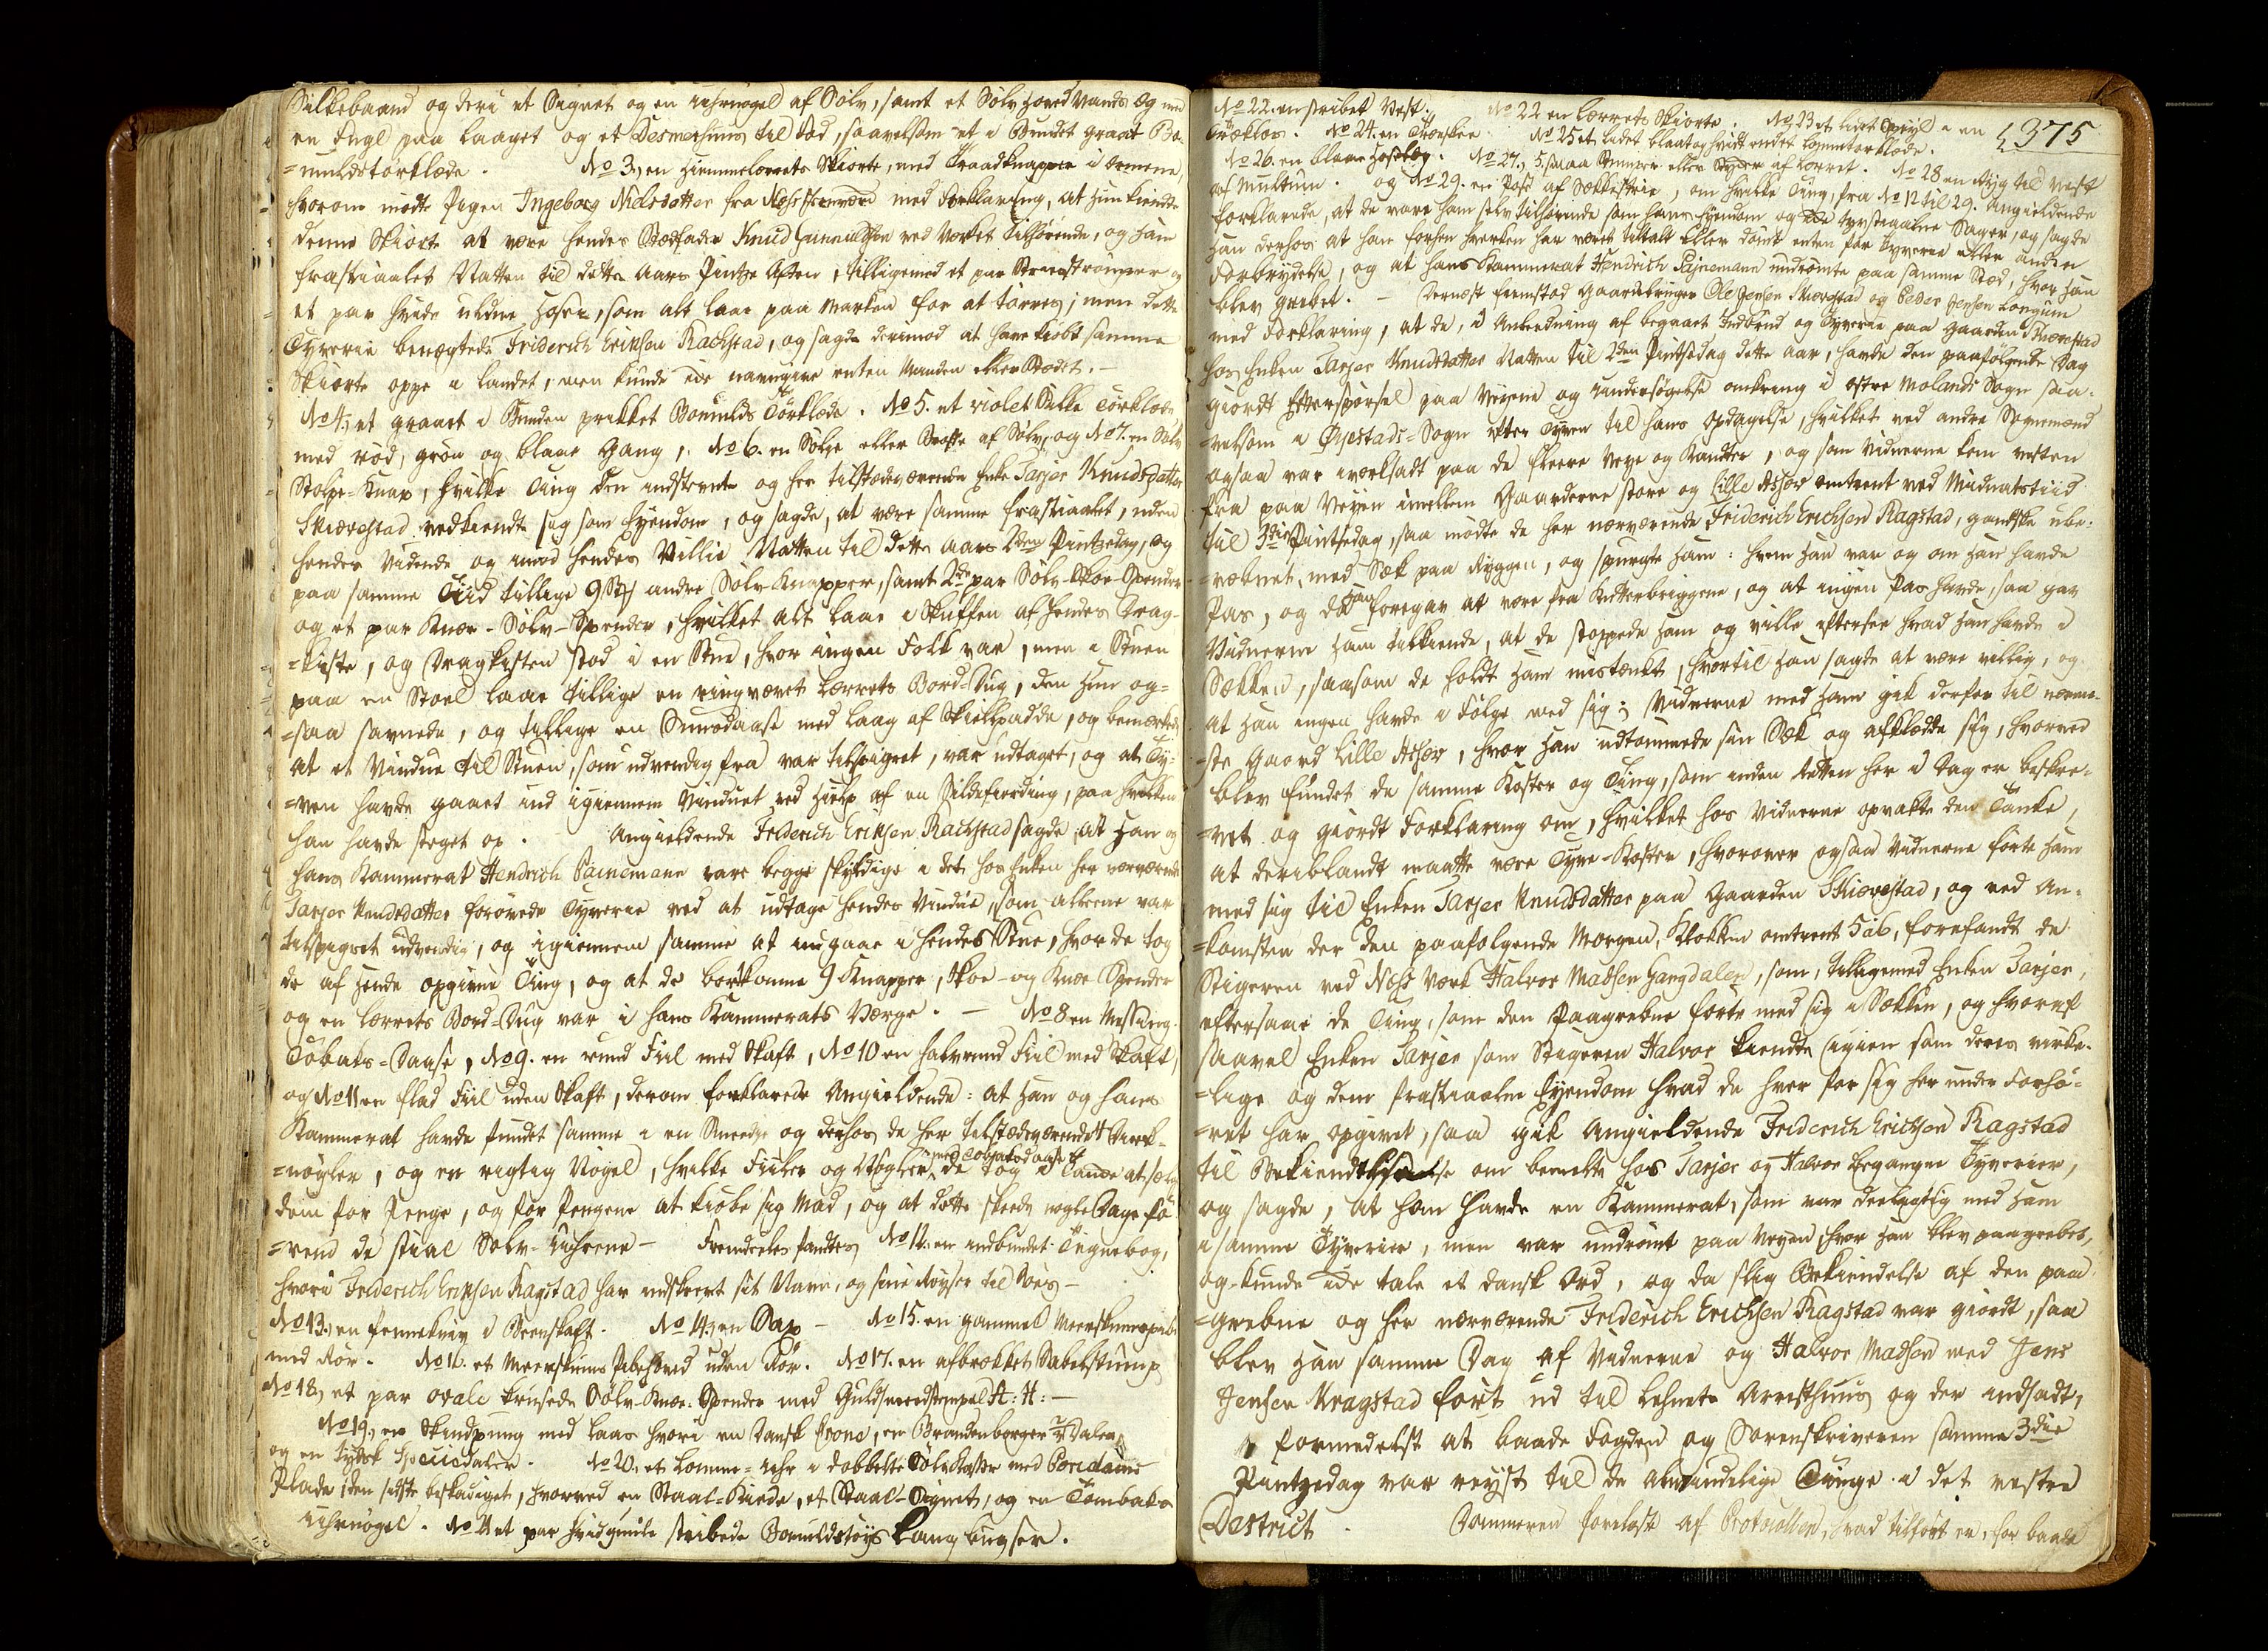 Silkebaand og deri et Signet og en Uhrnøgel af Sølv, samt et Sølv Hoved Vands Eg med
en Fugl paa Laaget og et Desmerhuus til Fod, saavelsom et i Bundet graat Bo-
=muldstørklæde. No 3, en Hiemmelærrets Skiorte, med Traadknapper i Ærmene,
hvorom mødte Pigen Ingeborg Nielsdatter fra Næss Jernværk med Forklaring, at hun kiendte
denne Skiorte at være hendes Stedfader Knud Gunnuldsen ved Værket tilhørende, og ham
frastiaalet Natten til dette Aars Pintze Aften, tilligemed et par Strømper og
et par hvide uldne Hoser, som alt laae paa Marken for at tørres; men dette
Tyverie benægtede Friderich Eriksen Rachstad, og sagde derimod at have kiøbt samme
Skiorte oppe i Landet, men kunde ide navngive enten Manden eller Stedet. -
No 4, et graaet i Bunden prikket Bomulds Tørklæde. No 5. et violet Silke Tørklæde
med rød, grøn og blaae Gang, No 6. en Sølje eller Broche af Sølv, og No 7. en Sølv
Stolpe-Knap, hvilke Ting den indstevnte og her tilstædeværende Enke Tarjer Knudsdatter
Skiævestad vedkiendte sig som Eyendom, og sagde, at være samme frastiaalet, uden
hendes Vidende og imod hendes Villie Natten til dette Aars 2den Pintzedag, og
paa samme Tiid tillige 9 Stk andre Sølv-Knapper, samt 2de par Sølv-Skoe-Spender
og et par Knæe-Sølv-Spender, hvilket alt laae i Skuffen af hendes Drag-
=kiste, og Dragkisten stod i en Stue, hvor ingen Folk var, men i Stuen
paa en Stoel laae tillige en ringværet Lærrets Bord-Dug, den hun og=
=saa savnede, og tillige en Snuusdaase med Laag af Skiellpadde, og bemærkede
at et Vindue til Stuen, som udvendig fra var tilspigret, var udtaget, og at Ty-
=ven havde gaaet ind igiennem Vinduet ved Hielp af en Sildefierding, paa hvilken
han havde steget op. Angieldende Friderich Eriksen Rachstad sagde at han og
hans Kammerat Hendrich Peinemann vare begge skyldige i det hos Enken her nærværende
Tarjer Knudsdatter forøvede Tyverie ved at udtage hendes Vindue, som allene var
tilspigret udvendig, og igiennem samme at indgaae i hendes Stue, hvor de tog
de af hende opgivne Ting, og at de bortkomne 9 Knapper, Skoe- og Knæe Spender
og en Lærrets Bord-Dug var i hans Kammerats Værge. - No 8 en Messing
Tobaks-Daase, No 9. en rund Fiil med Skaft, No 10 en halvrund Fiil med Skaft,
og No 11 en flad Fiil uden Skaft, derom forklarede Angieldende: at han og hans
Kammerat havde fundet samme i en Smedie og derhos de her tilstædeværende 4 Dirk-
=nøgler, og en rigtig Nøgel, hvilke Fiiler og Nøgler med Tobaksdaasen de tog i Tanke at sælge
dem for Penge, og for Pengene at kiøbe sig Mad, og at dette skeede nogle Dage fø-
=rend de stial Sølv-Uhrene - Fremdeeles fandtes No 12. en indbundet Tegnebog,
hvori Friderich Eriksen Ragstad har indskrevet sit Navn, og sine Reyser til Søes -
No 13, en Pennekniv i Beenskaft. No 14, en Sax - No 15. en gammel Meerskumspibe
med Rør. No 16. et Meerskums Pibehoved uden Rør. No 17. en afbrækket Sabelstump
No 18, et par ovale krusede Sølv-Knæe-Spender med Guldsmedstempel A: H: -
No 19, en Skindpung med Laas hvori en Dansk Crone, en Brandenborger Daler
og en Tydsk Speciesdaler. No 20, et Lomme-Uhr i dobbelte Sølvkasser med Porcelains
Plade, den sidste beskadiget, hvorved en Staal-Kiede, et Staal-Signet, og en Tombaks
Uhrnøgel. No 21 et par hvidguule stribede Bomuldstøys Lang buxer.
375
No 22. en stribet Vest. No 22 en Lærrets Skiorte. No 23 et lidet Speyl i en
Trælas. No 24. en Træeskee. No 25 et lidet blaat og hvidt rendet Lommetørklæde.
No 26. en blaae Hoselæg. No 27, 5 smaa Rimper eller Tyder af Lærret. No 28 en Ryg til Vest
af Multum. og No 29. en Pose af Sækkestrie, om hvilke Ting, fra No 12 til 29. Angieldende
forklarede, at de vare ham selv tilhørende som hans Eyendom og ide tyvstiaalne Sager, og sagde
han derhos at han forhen hverken har været tiltalt eller dømt enten for Tyverie eller anden
Forbrydelse, og at hans Kammerat Hendrich Pejnemann undrømte paa samme Sted, hvor han
blev grebet. - Dernæst fremstod Gaardbruger Ole Jensen Skiævestad og Peder Jensen Longum
med Forklaring, at de, i Anledning af begaaet Indbrud og Tyverie paa Gaarden Skiævestad
hos Enken Tarjer Knudsdatter Natten til 2den Pintsedag dette Aar, havde den paafølgende Dag
giordt Efterspørsel paa Veyene og Undersøgelse omkring i Østre Molands Sogn saa-
=velsom i Øyestads-Sogn efter Tyven til hans Opdagelse, hvilket ved andre Sognemænd
ogsaa var iverksadt paa de fleere Veye og Kandter, og som Vidnerne kom vesten
fra paa Veyen imellem Gaardene store og Lille Assev omtrent ved Midnatstiid
til 3die Pintsedag, saa mødte de her nærværende Friderich Erichsen Ragstad, gandske ube-
=væbnet, med Sæk paa Ryggen, og spurgte ham: hvem han var og om han havde
Pas, og da han foregav at være fra Kutterbriggene, og at ingen Pas havde, saa gav
Vidnerne ham tilkiende, at de stoppede ham og ville eftersee hvad han havde i
Sækken, saasom de holdt ham mistænkt, hvortil han sagde at være villig, og
at han ingen havde i Følge med sig; Vidnerne med ham gik derfor til nærme-
=ste Gaard Lille Assev, hvor han udtømmede sin Sæk og afklædte sig, hvorved
blev fundet de samme Koster og Ting, som inden Retten her i Dag er beskre-
=vet og giordt Forklaring om, hvilket hos Vidnerne opvakte den Tanke,
at deriblandt maatte være Tyve-Koster, hvorover ogsaa Vidnerne førte ham
med sig til Enken Tarjer Knudsdatter paa Gaarden Skiævestad, og ved An-
=komsten der den paafølgende Morgen, Klokken omtrent 5 a 6, forefandt de
Stigeren ved Næss Værk Halvor Madsen Gangdalen, som, tilligemed Enken Tarjer,
eftersaae de Ting, som den Paagrebne førte med sig i Sækken, og hvoraf
saavel Enken Tarjer som Stigeren Halvor kiendte igien som deres virke-
=lige og dem frastiaalne Eyendom hvad de hver for sig her under Forhø-
=ret har opgivet, saa gik Angieldende Friderich Erichsen Ragstad
til Bekiendtelse om bemelte hos Tarjer og Halvor begangne Tyverier,
og sagde, at han havde en Kammerat, som var deelagtig med ham
i samme Tyverier, men var undrømt paa Veyen hvor han blev paagrebet,
og kunde ide tale et dansk Ord, og da slig Bekiendelse af den paa
=grebne og her nærværende Friderich Erichsen Ragstad var giordt, saa
blev han samme Dag af Vidnerne og Halvor Madsen med Jens
Jensen Kragstad ført ud til Lehnets Arresthuus og der indsadt,
formedelst at baade Fogden og Sorenskriveren samme 3die
Pintzedag var reyst til de almindelige Tinge i det vestre
Destrict. Dommeren foreløst af Protocollen, hvad tilført er, for baade